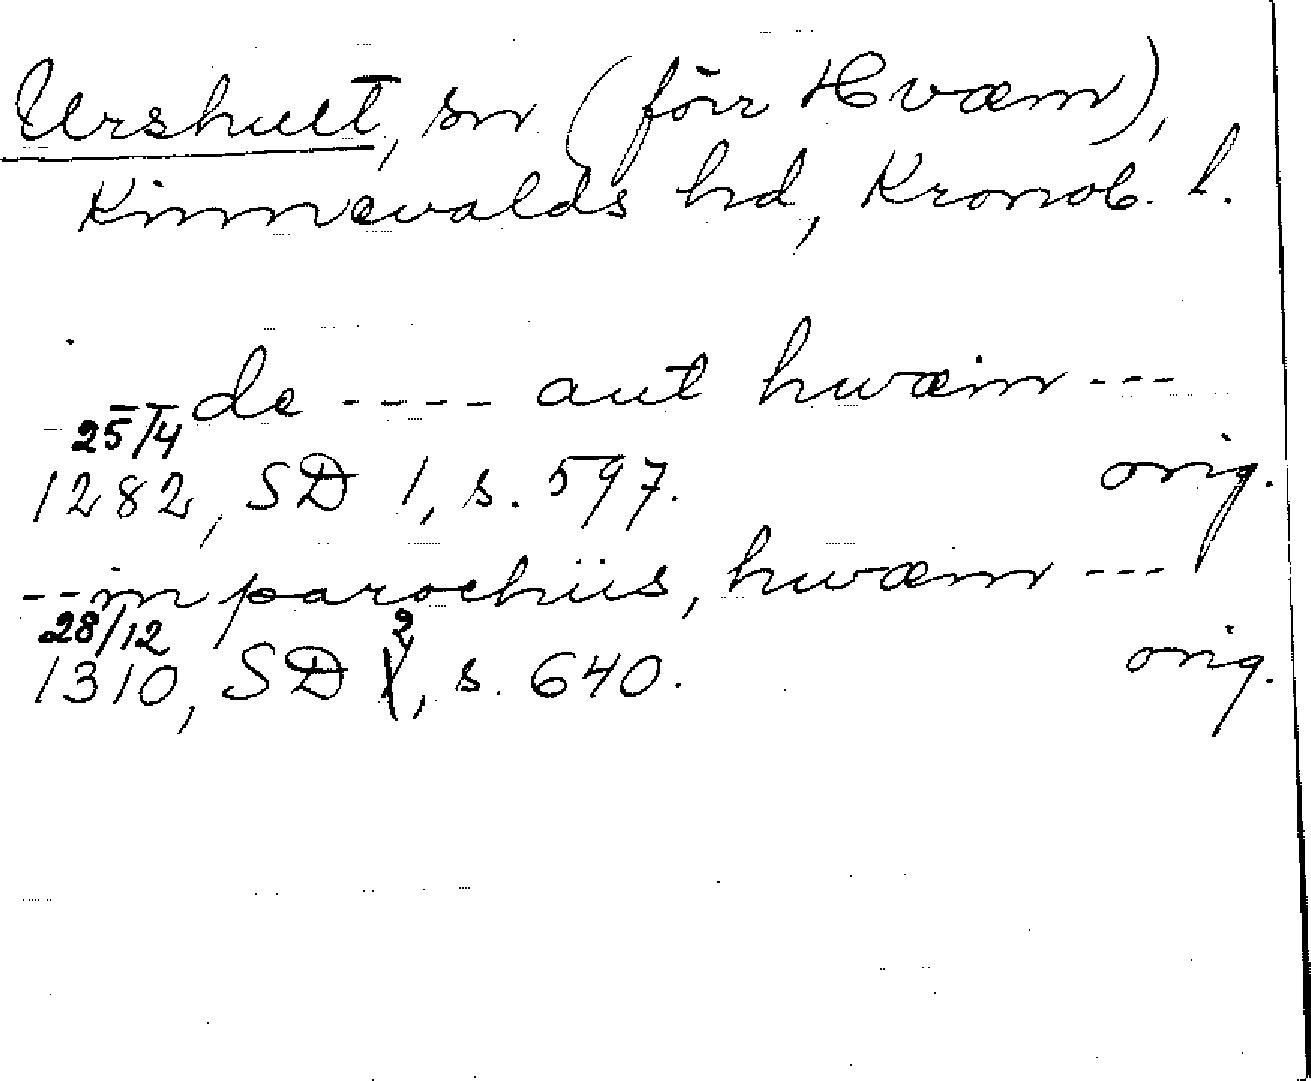 Urshult, sn (förr Hvæm),
Kinnevalds hd, Kronob. l.
de ---- aut hwæm ---
25/4
1282, SD 1, s. 597. orig.
--in parochiis, hwæm ---
28/12
1310, SD 2, s. 640. orig.